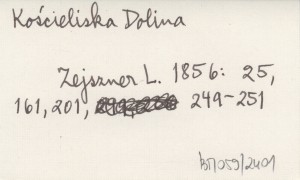 Kościeliska Dolina
Zejszner L. 1856: 25,
161, 201, 249-251
BM/059/2401